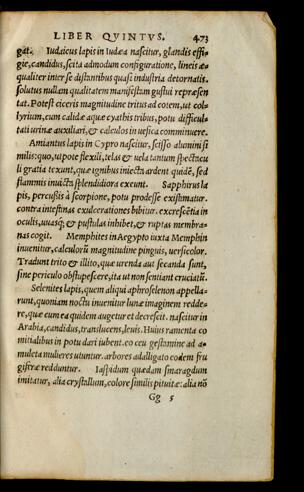 LIBER QVINTVS. 473
gat. Iudaicus lapis in Iudæa nascitur, glandis effi-
gie, candidus, scita admodum configuratione, lineis æ-
qualiter inter se distantibus quasi industria detornatis.
solutus nullam qualitatem manifestam gustui repræsen
tat. Potest ciceris magnitudine tritus ad cotem, ut col-
lyrium, cum calidæ aquæ cyathis tribus, potu difficul-
tati urinæ auxiliari, & calculos in uesica comminuere.
Amiantus lapis in Cypro nascitur, scisso alumini si
milis: quo, ut pote flexili, telas & uela tantum spectacu
li gratia texunt, quæ ignibus iniecta ardent quidē, sed
flammis inuicta splendidiora exeunt. Sapphirus la
pis, percussis à scorpione, potu prodesse existimatur.
contra intestinas exulcerationes bibitur. excrescētia in
oculis, uuasq; & pustulas inhibet, & ruptas membra-
nas cogit. Memphites in Aegypto iuxta Memphin
inuenitur, calculorū magnitudine pinguis, uersicolor.
Tradunt trito & illito, quæ urenda aut secanda sunt,
sine periculo obstupescere, ita ut non sentiant cruciatū.
Selenites lapis, quem aliqui aphroselenon appella-
runt, quoniam noctu inuenitur lunæ imaginem redde-
re, quæ cum ea quidem augetur et decrescit. nascitur in
Arabia, candidus, translucens, leuis. Huius ramenta co
mitialibus in potu dari iubent. eo ceu gestamine ad a-
muleta mulieres utuntur. arbores adalligato eodem fru
giferæ redduntur. Iaspidum quædam smaragdum
imitatur, alia crystallum, colore similis pituitæ: alia nō
Gg 5